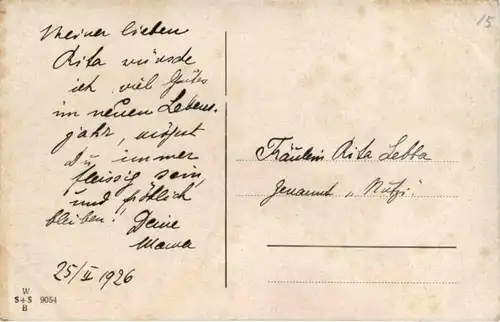 Meiner lieben
Rita wünsche
ich viel Gutes
im neuen Lebens-
jahr, mögest
Du immer
fleissig sein,
und fröhlich
bleiben! Deine
Mama
25/II 1926
Fräulein Rita Lebba
Genannt „Mutzi“
15
W
S+S 9054
B